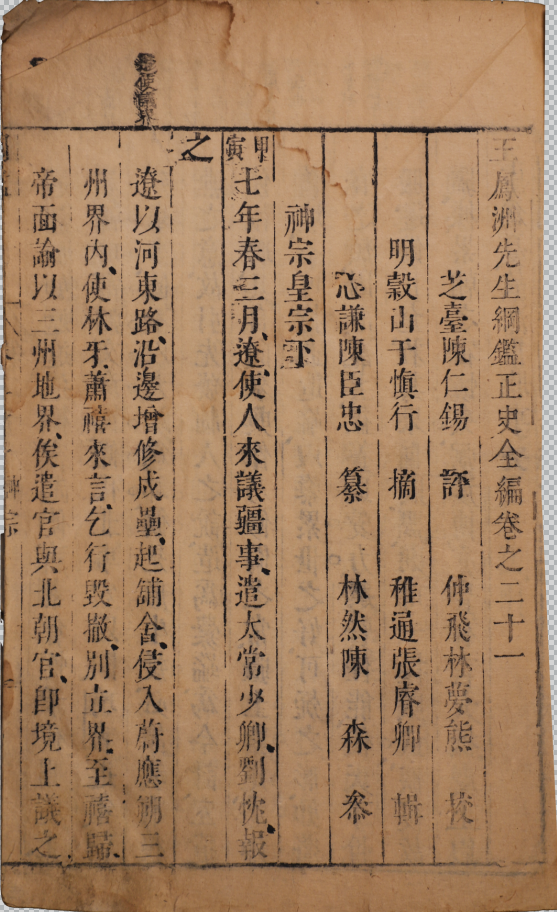 王鳳洲先生綱鑑正史全編卷之二十一
芝臺陳仁錫 評 仲飛林夢熊 校
明穀山于慎行 摘 稚通張睿卿 輯
心謙陳臣忠 纂 林然陳 森 叅
神宗皇宗下
甲寅
七年春三月、遼使人來議疆事、遣太常少卿劉忱報
之
遼以河東路沿邊增修戍壘、起舖舍、侵入蔚應朔三
州界內、使林牙、蕭禧來言、乞行毀撤、別立界、至禧歸、
帝面諭以三州地界、俟遣官與北朝官、卽境上議之
遼使議界
神宗